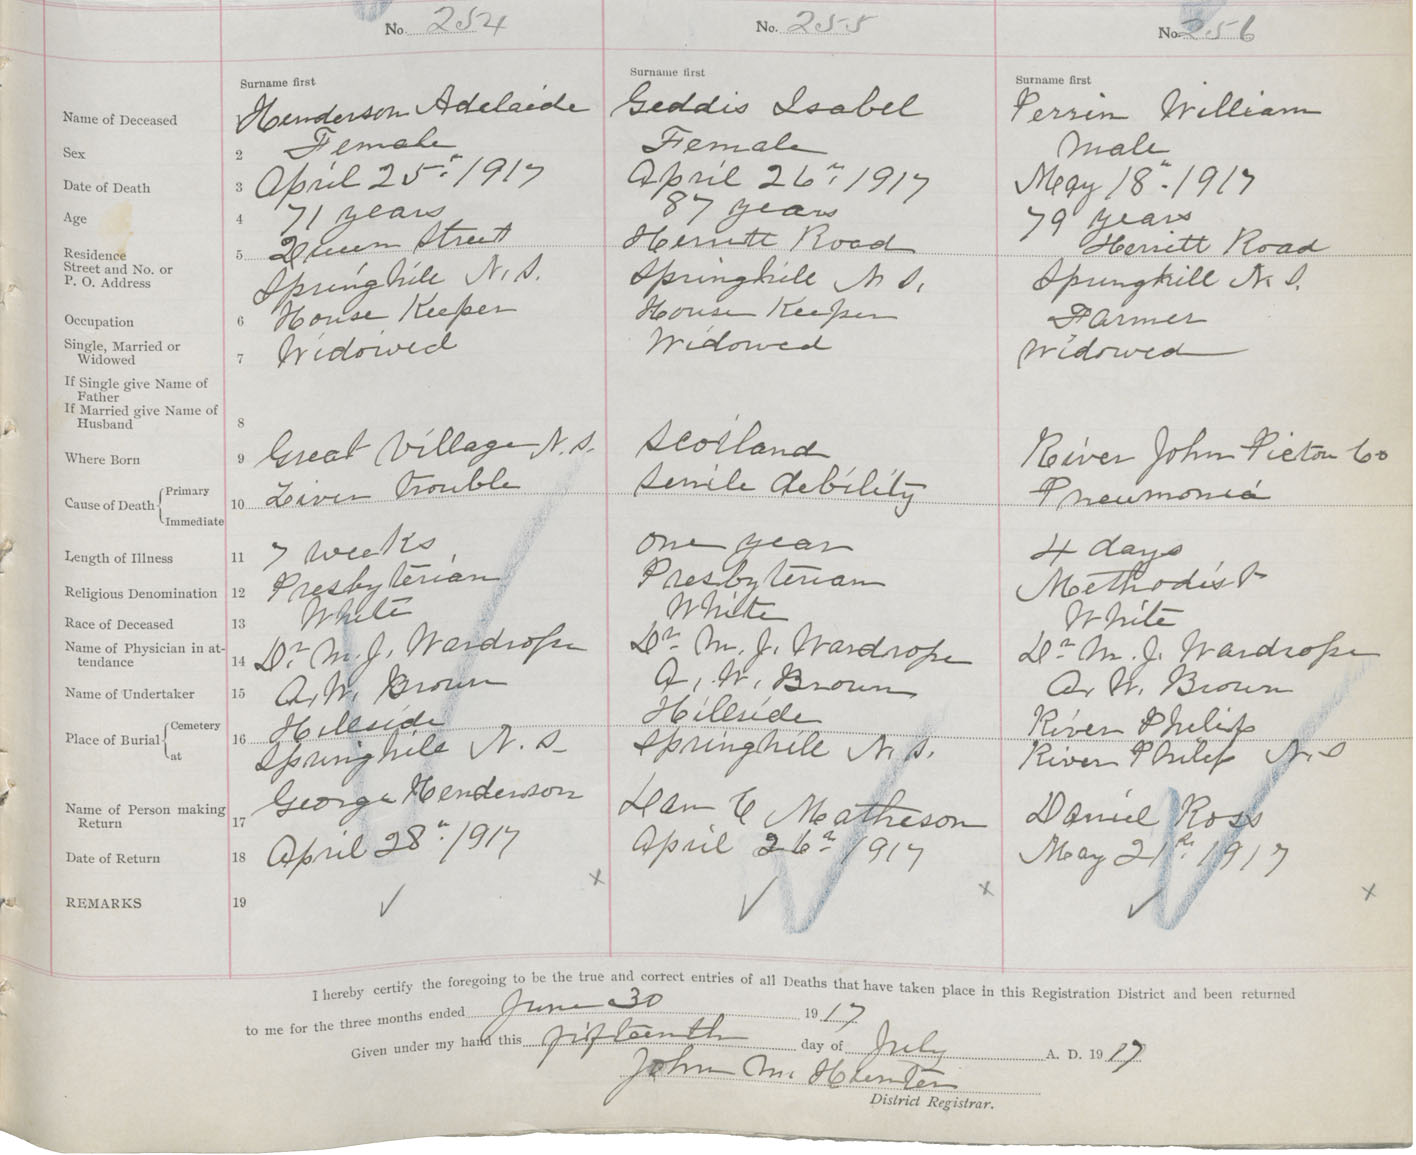 No. 254 No. 255 No. 256
Surname first Surname first Surname first
Name of Deceased Henderson Adelaide Geddis Isabel Perrin William
Sex 2 Female Female Male
Date of Death 3 April 25th 1917 April 26th 1917 May 18th 1917
Age 4 71 years 87 years 79 years
Residence 5 Queen Street Herritt Road Herritt Road
Street and No. or
P. O. Address Springhill N.S. Springhill N S. Springhill N S.
Occupation 6 House Keeper House Keeper Farmer
Single, Married or
Widowed 7 Widowed Widowed Widowed
If Single give Name of
Father
If Married give Name of
Husband 8
Where Born 9 Great Village N.S. Scotland River John Pictou Co
Cause of Death { Primary
Immediate 10 Liver trouble Senile debility Pneumonia
Length of Illness 11 7 weeks one year 4 days
Religious Denomination 12 Presbyterian Presbyterian Methodist
Race of Deceased 13 White White White
Name of Physician in at-
tendance 14 Dr. M. J. Wardrope Dr. M. J. Wardrope Dr. M. J. Wardrope
Name of Undertaker 15 A. W. Brown A. W. Brown A. W. Brown
Place of Burial { Cemetery Hillside Hillside River Philip
at 16 Springhill N. S. Springhill N. S. River Philip N.S
Name of Person making
Return 17 George Henderson Dan Matheson Daniel Ross
Date of Return 18 April 28th 1917 April 26th 1917 May 21st 1917
x x x
REMARKS 19 ✓ ✓ ✓
I hereby certify the foregoing to be the true and correct entries of all Deaths that have taken place in this Registration District and been returned
to me for the three months ended June 30 1917
Given under my hand this fifteenth day of July A. D. 1917
John M. Hunter
District Registrar.